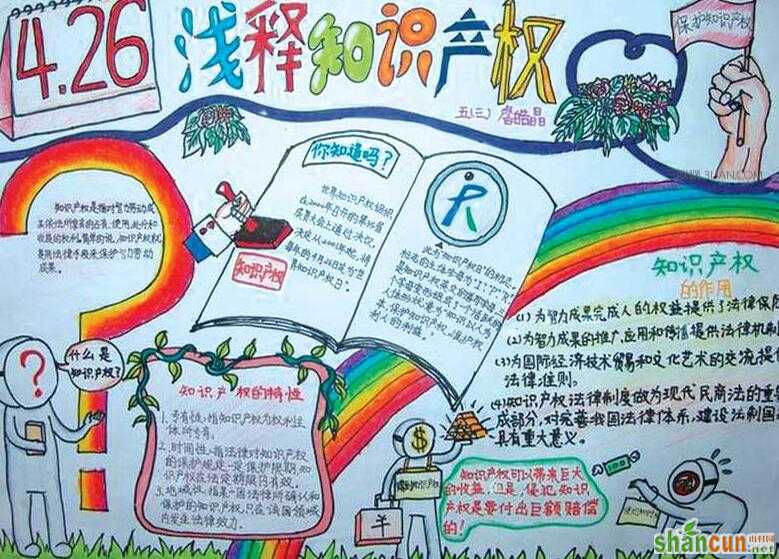 4.26
浅释知识产权
五(三)
保护知识产权
知识产权是指对智力劳动成
果依法所享有的占有、使用、处分和
收益的权利。简单的说,知识产权就
是用法律手段来保护智力劳动
成果。
你知道吗?
世界知识产权组织
在2000年召开的第35届
成员大会上通过决议,
决定从2001年起,将
每年的4月26日定为世
界知识产权日。
知识产权
R
什么是
知识产权?
知识产权的特性
1.专有性:指知识产权为权利主
体所专有。
2.时间性:指法律对知识产权
的保护规定一定保护期限,知
识产权在法定期限内有效。
3.地域性:指某一国法律所确认和
保护的知识产权,只在该国领域
内发生法律效力。
知识产权
的作用
(1)为智力成果完成人的权益提供了法律保
(2)为智力成果的推广应用和传播提供法律机
(3)为国际经济技术贸易和文化艺术的交流提
法律准则。
(4)知识产权法律制度做为现代民商法的重
成部分,对完善我国法律体系,建设法制国
具有重大意义。
$
知识产权可以带来巨大
的收益,但是,侵犯知识
产权是要付出巨额赔偿
的!
shancun
.net